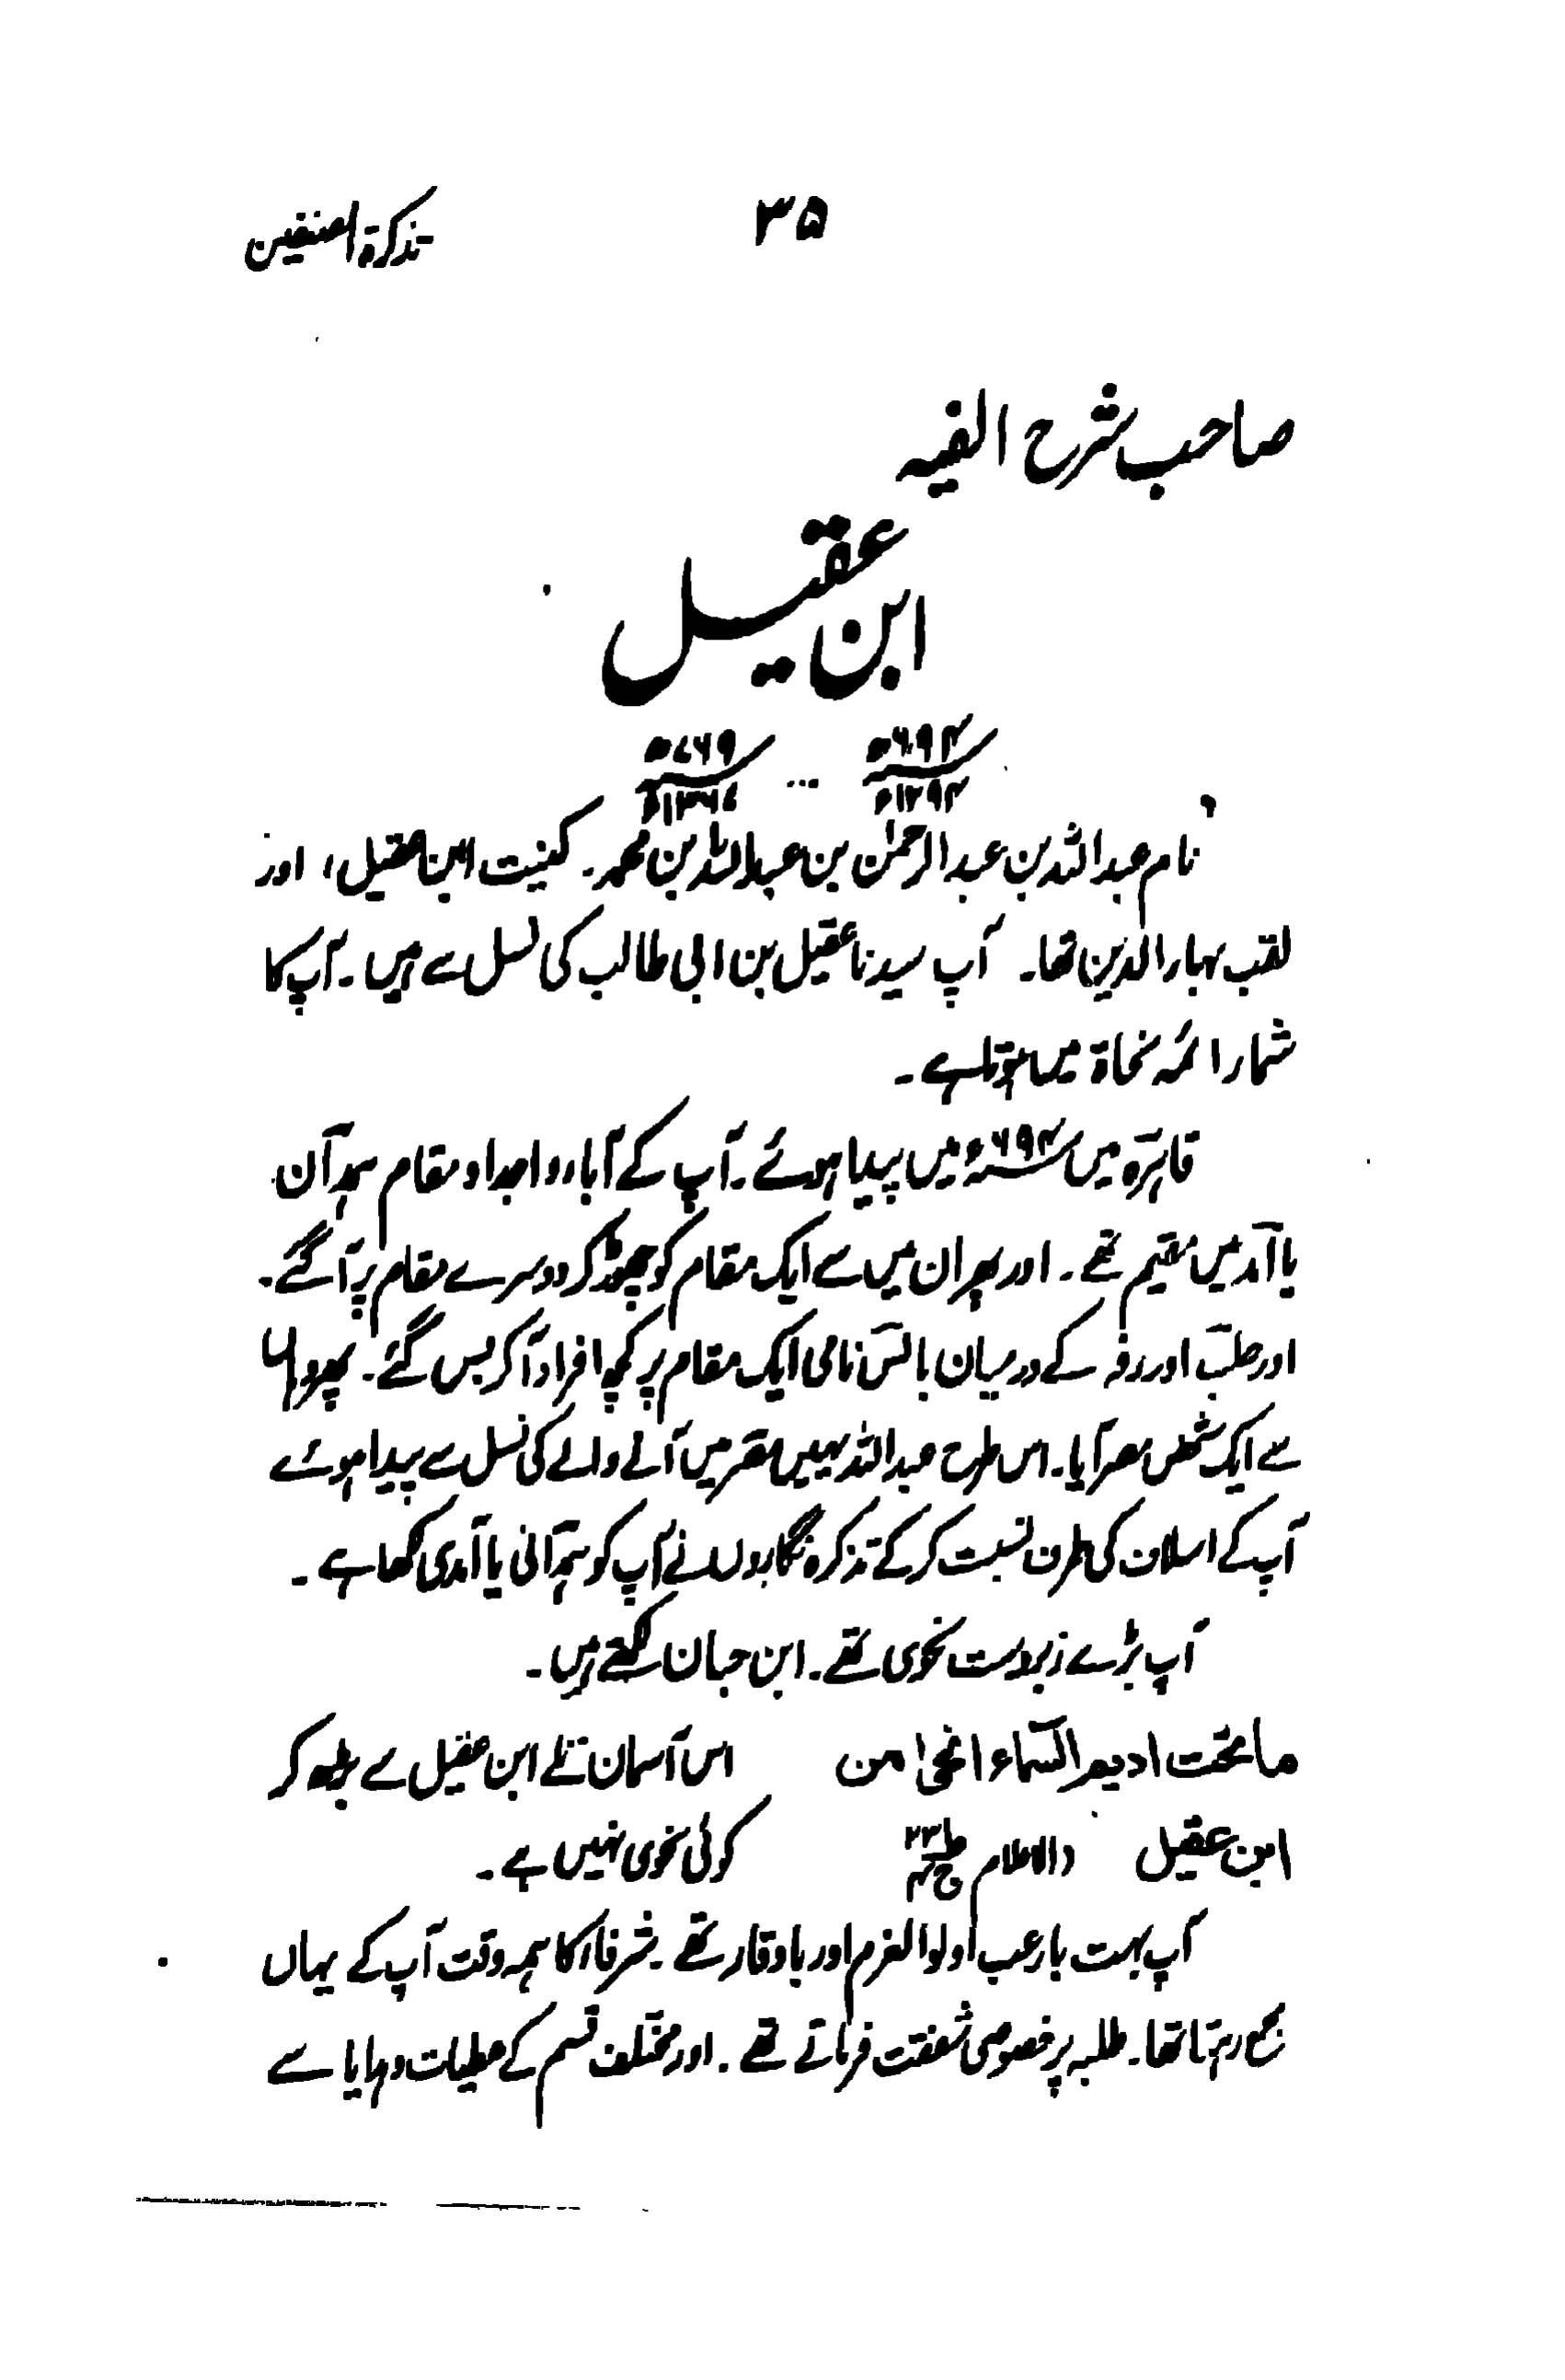 تذکرۃ المصنفین
۳۵
صاحب شرح الفیہ
ابن عقیل
۶۹۴ھ ... ۷۶۹ھ
۱۲۹۴ء ۱۳۶۷ء
نام عبد اللہ بن عبد الرحمٰن بن عبد اللہ بن محمد۔ کنیت ابن عقیل، اور
لقب بہاء الدین تھا۔ آپ سیدنا عقیل بن ابی طالب کی نسل سے ہیں۔ آپ کا
شمار ائمہ نحاۃ میں ہوتا ہے۔
قاہرہ میں ۶۹۴ھ میں پیدا ہوئے۔ آپ کے آباء و اجداد مقام ہمدان
یا آمد میں مقیم تھے۔ اور پھر ان میں سے ایک مقام کو چھوڑ کر دوسرے مقام پر آگئے۔
اور حلب اور رقہ کے درمیان بالس نامی ایک مقام پر کچھ افراد آکر بس گئے۔ پھر وہاں
سے ایک شخص مصر آیا۔ اس طرح عبد اللہ یہیں مصر میں آنے والے کی نسل سے پیدا ہوئے
آپ کے اسلاف کی طرف نسبت کر کے تذکرہ نگاروں نے آپ کو ہمدانی یا آمدی لکھا ہے۔
آپ بڑے زبردست نحوی تھے۔ ابن حبان لکھتے ہیں۔
ما تحت ادیم السماء انحیٰ من اس آسمان تلے ابن عقیل سے بڑھ کر
ابن عقیل (الاعلام کوئی نحوی نہیں ہے۔
آپ بہت بارعب اولوالعزم اور باوقار تھے۔ شرفاء کا ہمہ وقت آپ کے یہاں
مجمع رہتا تھا۔ طلبہ پر خصوصی شفقت فرماتے تھے۔ اور مختلف قسم کے عطیات و ہدایا سے